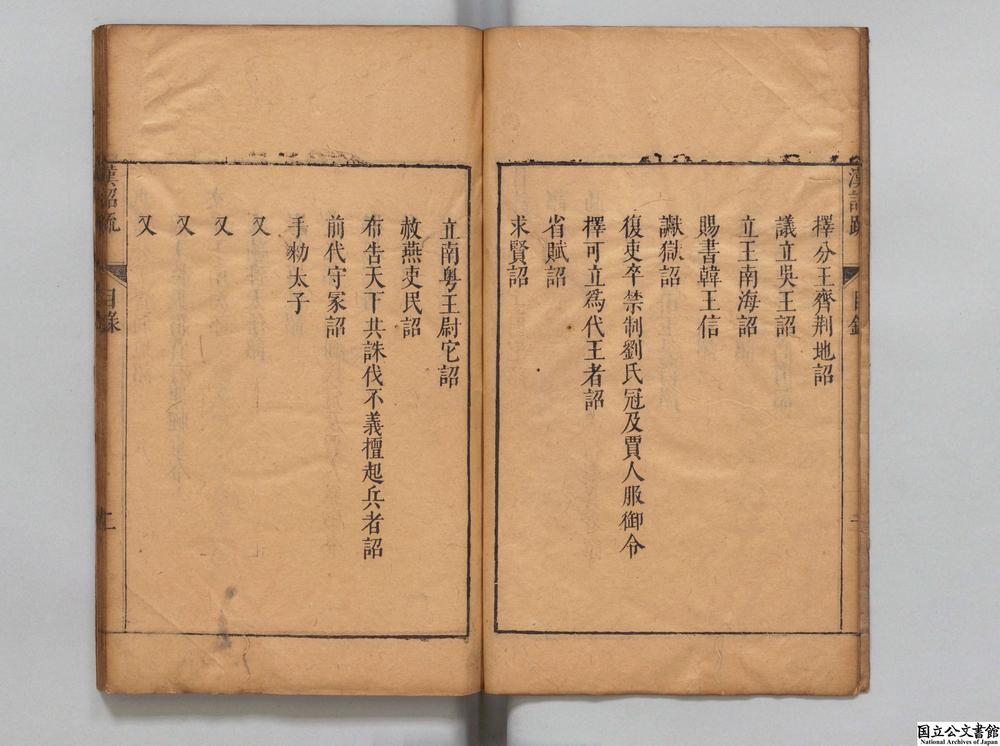 漢詔疏
目錄
擇分王齊荆地詔
議立吳王詔
立王南海詔
賜書韓王信
讞獄詔
復吏卒禁制劉氏冠及賈人服御令
擇可立爲代王者詔
省賦詔
求賢詔
立南粤王尉它詔
赦燕吏民詔
布告天下共誅伐不義擅起兵者詔
前代守冢詔
手勑太子
又
又
又
又
漢詔疏
目錄
二
国立公文書館
National Archives of Japan